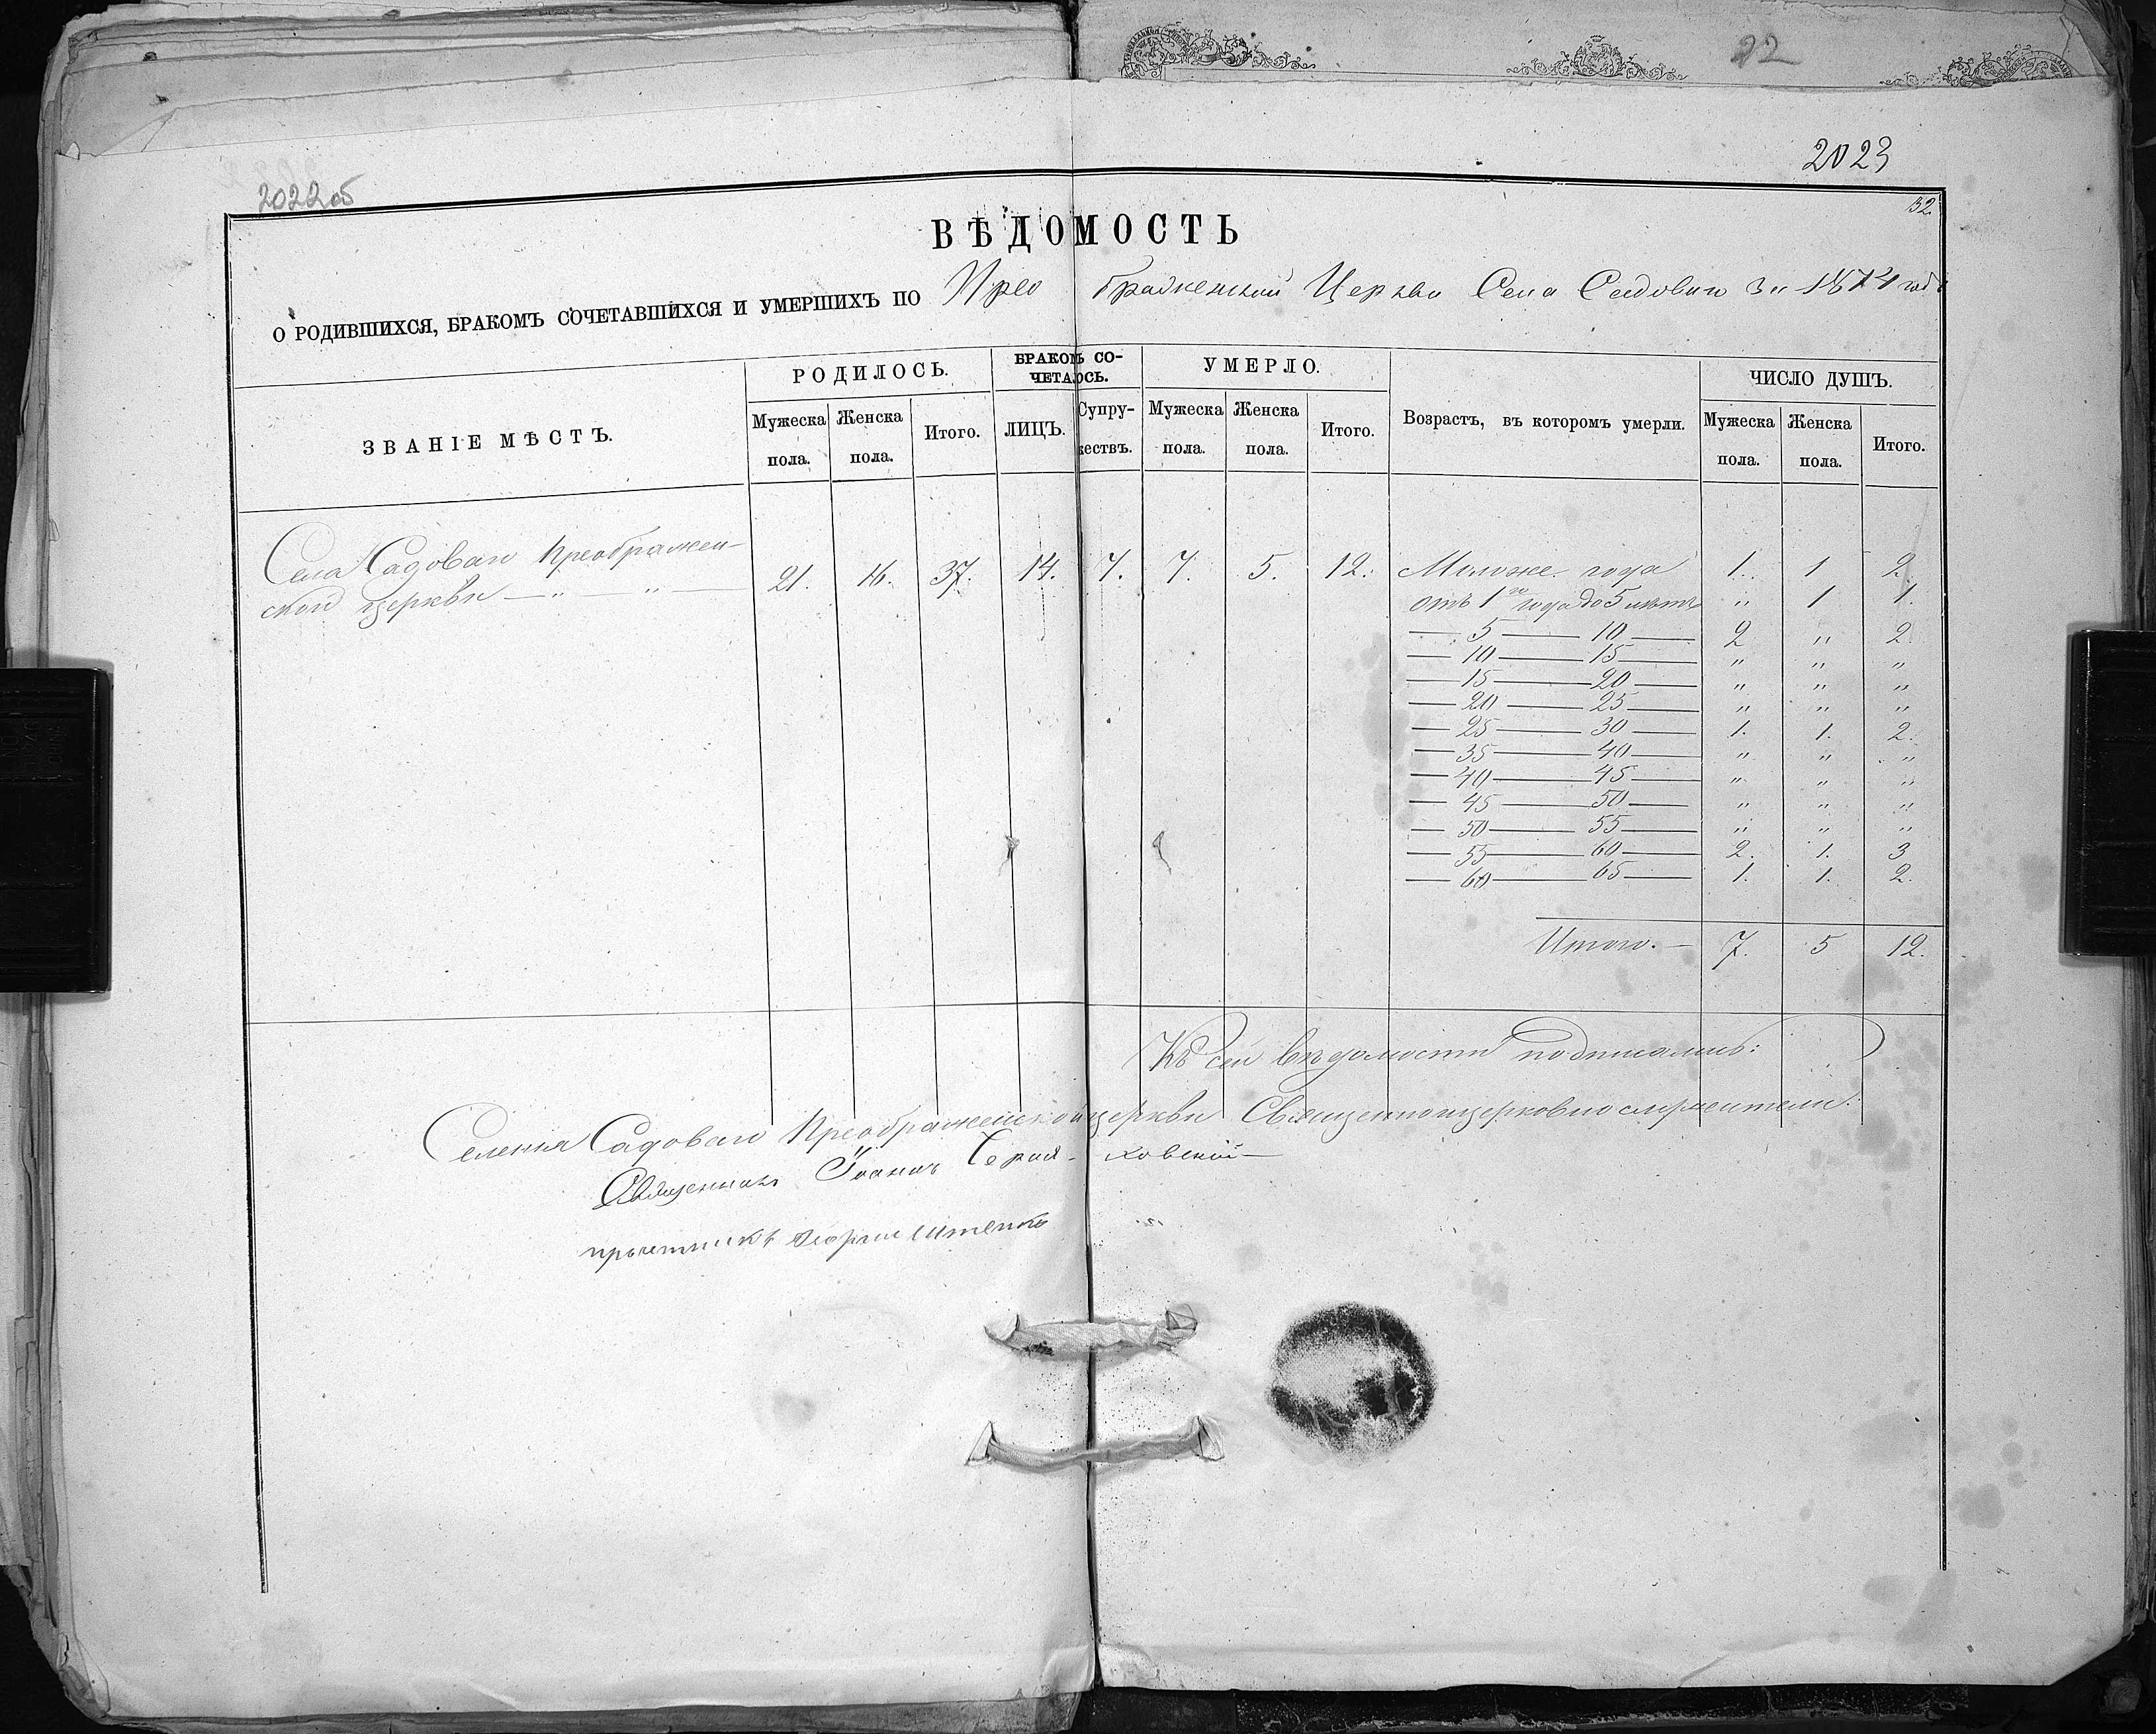 22
2023
2022об
32
ВѢДОМОСТЬ
О РОДИВШИХСЯ, БРАКОМЪ СОЧЕТАВШИХСЯ И УМЕРШИХЪ ПО Преображенской Церкви Села Садоваго за 1874 годъ
ЗВАНІЕ МѢСТЪ. РОДИЛОСЬ. БРАКОМЪ СО- УМЕРЛО. Возрастъ, въ которомъ умерли. ЧИСЛО ДУШЪ.
ЧЕТАЛОСЬ.
Мужеска Женска Итого. ЛИЦЪ. Супру- Мужеска Женска Итого. Мужеска Женска Итого.
пола. пола. жествъ. пола. пола. пола. пола.
Села Садоваго Преображен- 21. 16. 37. 14. 7. 7. 5. 12. Моложе года 1. 1 2.
ской церкви — " — " — отъ 1го года до 5 летъ " 1 1.
— 5 — 10 — 2 " 2
— 10 — 15 — " " "
— 15 — 20 — " " "
— 20 — 25 — " " "
— 25 — 30 — 1. 1. 2.
— 35 — 40 — " " "
— 40 — 45 — " " "
— 45 — 50 — " " "
— 50 — 55 — " " "
— 55 — 60 — 2. 1. 3
— 60 — 65 — 1. 1. 2.
Итого. — 7. 5 12.
Къ сей ведомости подписались:
Селенія Садоваго Преображенской церкви Священноцерковнослужители:
Священникъ Іоаннъ
причетникъ Георгій